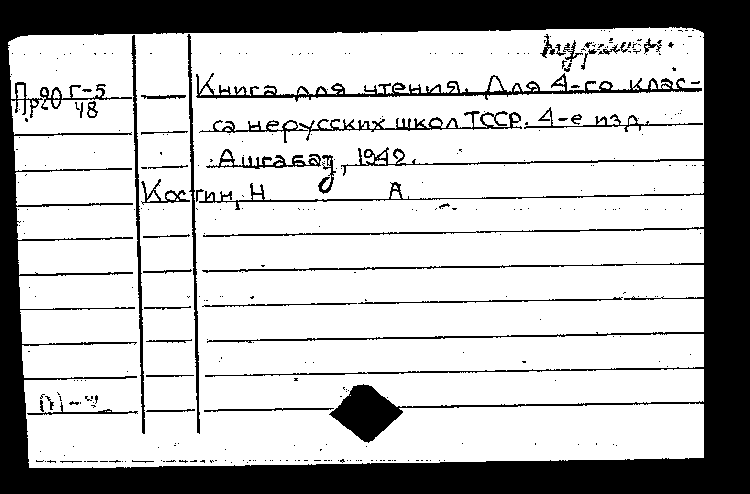 туркмен.
Пр20 Г-5/48
Книга для чтения. Для 4-го клас-
са нерусских школ ТССР. 4-е изд.
Ашгабад, 1942.
Костин, Н А